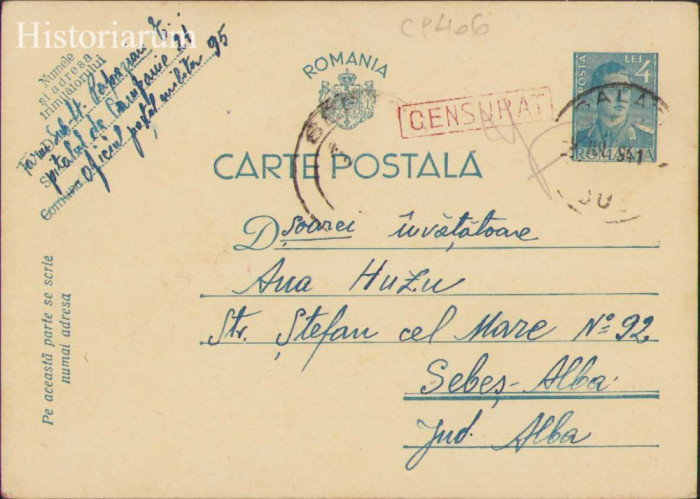 Historiarum
CP406
Numele
și adresa
trimițătorului
Sub. Lt.
Spitalul de Campanie 21
Comuna Oficiul poștal militar 95
ROMANIA
CENSURAT
POSTA LEI 4
ROMANIA
GALAȚI
941
CARTE POSTALĂ
Dșoarei învățătoare
Ana Huzu
Str. Ștefan cel Mare Nº 92
Sebeș-Alba
Jud. Alba
Pe această parte se scrie
numai adresa